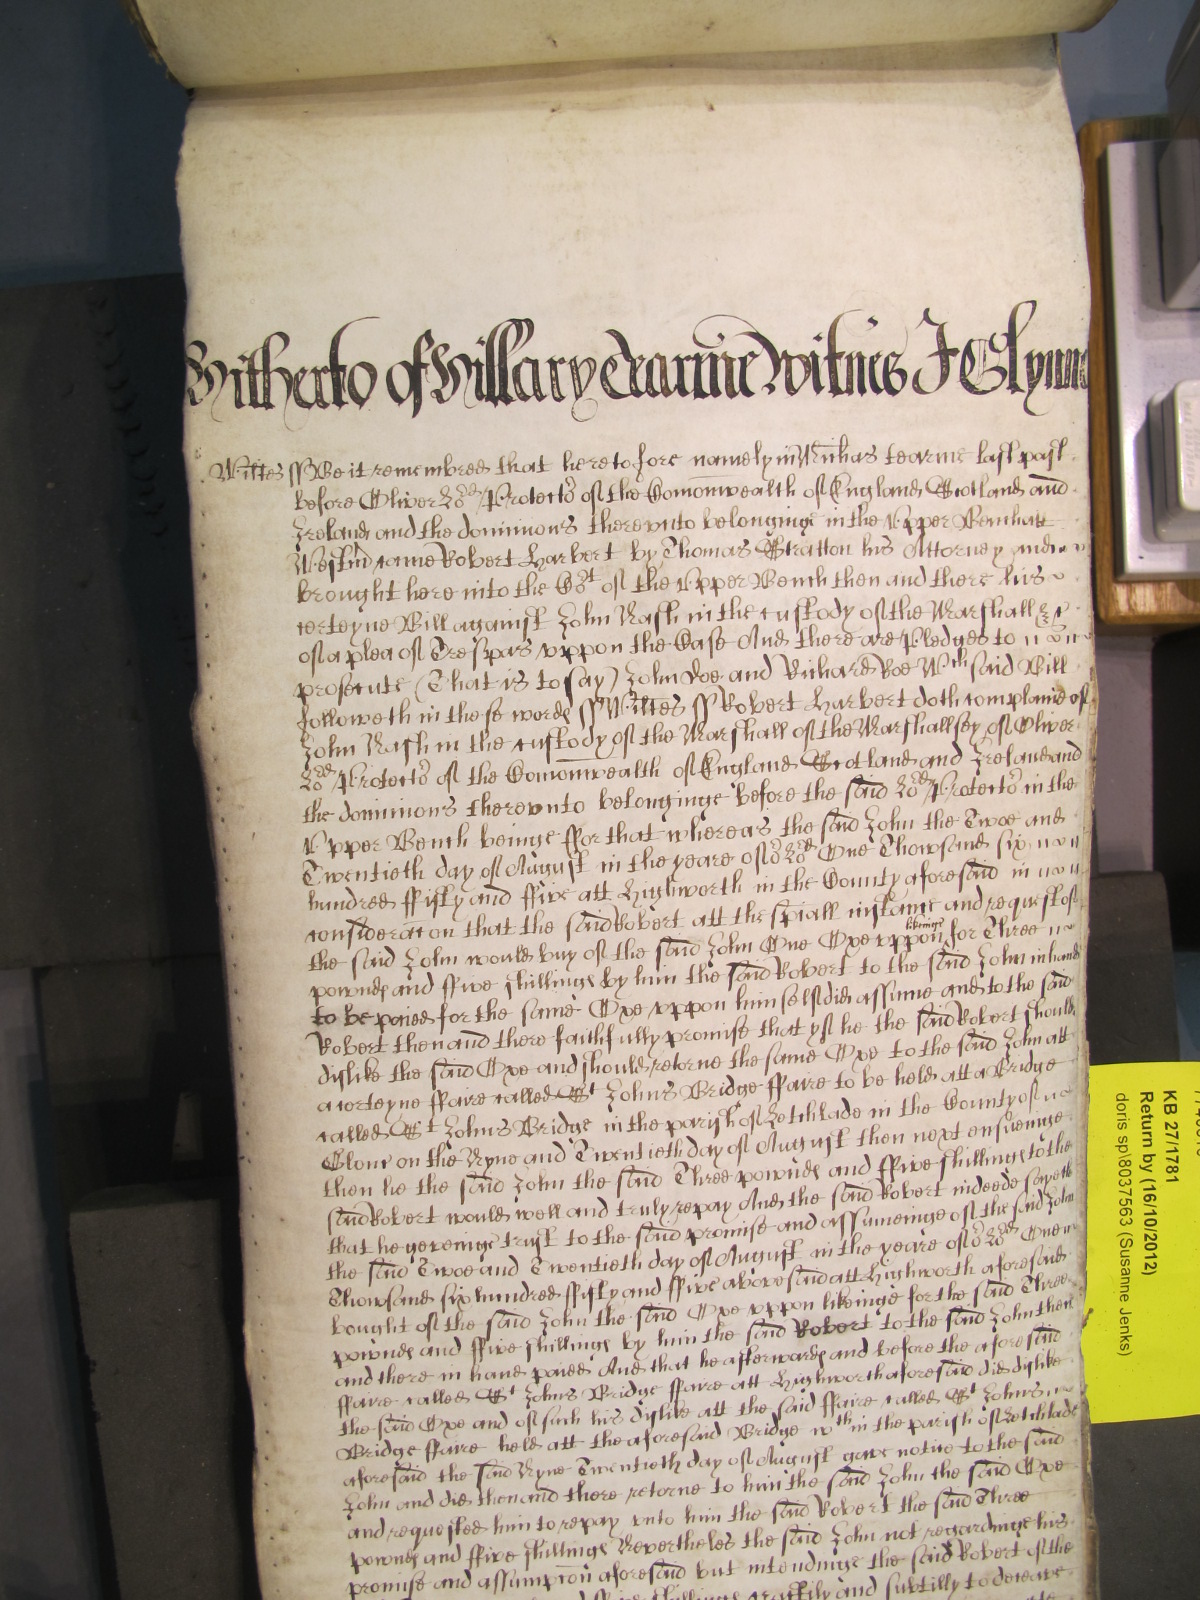 Hitherto of Hillary Tearme Witnes J Glynne
Wiltes ss Be it remembred that heretofore namely in Michas tearme last past
before Oliver Lord Protector of the Comonwealth of England Scotland and
Ireland and the dominions thereunto belonginge in the Upper Bench att
Westm came Robert Harbert by Thomas Stratton his Attorney and
brought here into the Cort of the Upper Bench then and there his
certeyne Bill against John Nash in the custody of the Marshall &c
of a plea of Trespas uppon the Case And there are Pledges to
prosecute (That is to say) John Doe and Richard Roe Wch said Bill
followeth in these words ss Wiltes ss Robert Harbert doth complaine of
John Nash in the custody of the Marshall of the Marshallsey of Oliver
Lord Protector of the Comonwealth of England Scotland and Ireland and
the dominions thereunto belonginge before the said Lord Protector in the
Upper Bench beinge ffor that whereas the said John the Twoe and
Twentieth day of August in the yeare of or Lord One Thowsand six
hundred ffifty and ffive att Highworth in the County aforesaid in
consideracon that the said Robert att the spiall instance and request of
the said John would buy of the said John One Oxe uppon likeinge for Three
pownds and ffive shillings by him the said Robert to the said John in hand
to be paied for the same Oxe uppon himself did assume and to the said
Robert then and there faithfully promise that yf he the said Robert should
dislike the said Oxe and should retorne the same Oxe to the said John att
a certeyne ffaire called St Johns Bridge ffaire to be held att a Bridge
called St Johns Bridge in the parish of Letchlade in the County of
Glouc on the Nyne and Twentieth day of August then next ensueinge
then he the said John the said Three pownds and ffive shillings to the
said Robert would well and truly repay And the said Robert indeede sayeth
that he geveinge trust to the said promise and assumeinge of the said John
the said Twoe and Twentieth day of August in the yeare of or Lord One
Thowsand six hundred ffifty and ffive abovesaid att Highworth aforesaid
bought of the said John the said Oxe uppon likeinge for the said Three
pownds and ffive shillings by him the said Robert to the said John then
and there in hand paied And that he afterwards and before the aforesaid
ffaire called St Johns Bridge ffaire att Highworth aforesaid did dislike
the said Oxe and of such his dislike att the said ffaire called St Johns
Bridge ffaire held att the aforesaid Bridge wthin the parish of Letchlade
aforesaid the said Nyne Twentieth day of August gave notice to the said
John and did then and there retorne to him the said John the said Oxe
and requested him to repay unto him the said Robert the said Three
pownds and ffive shillings Nevertheles the said John not regardinge his
promise and assumpcon aforesaid but intendinge the said Robert of the
ffive shillings craftily and subtilly to deceave
KB 27/1781
Return by (16/10/2012)
doris sp\8037563 (Susanne Jenks)